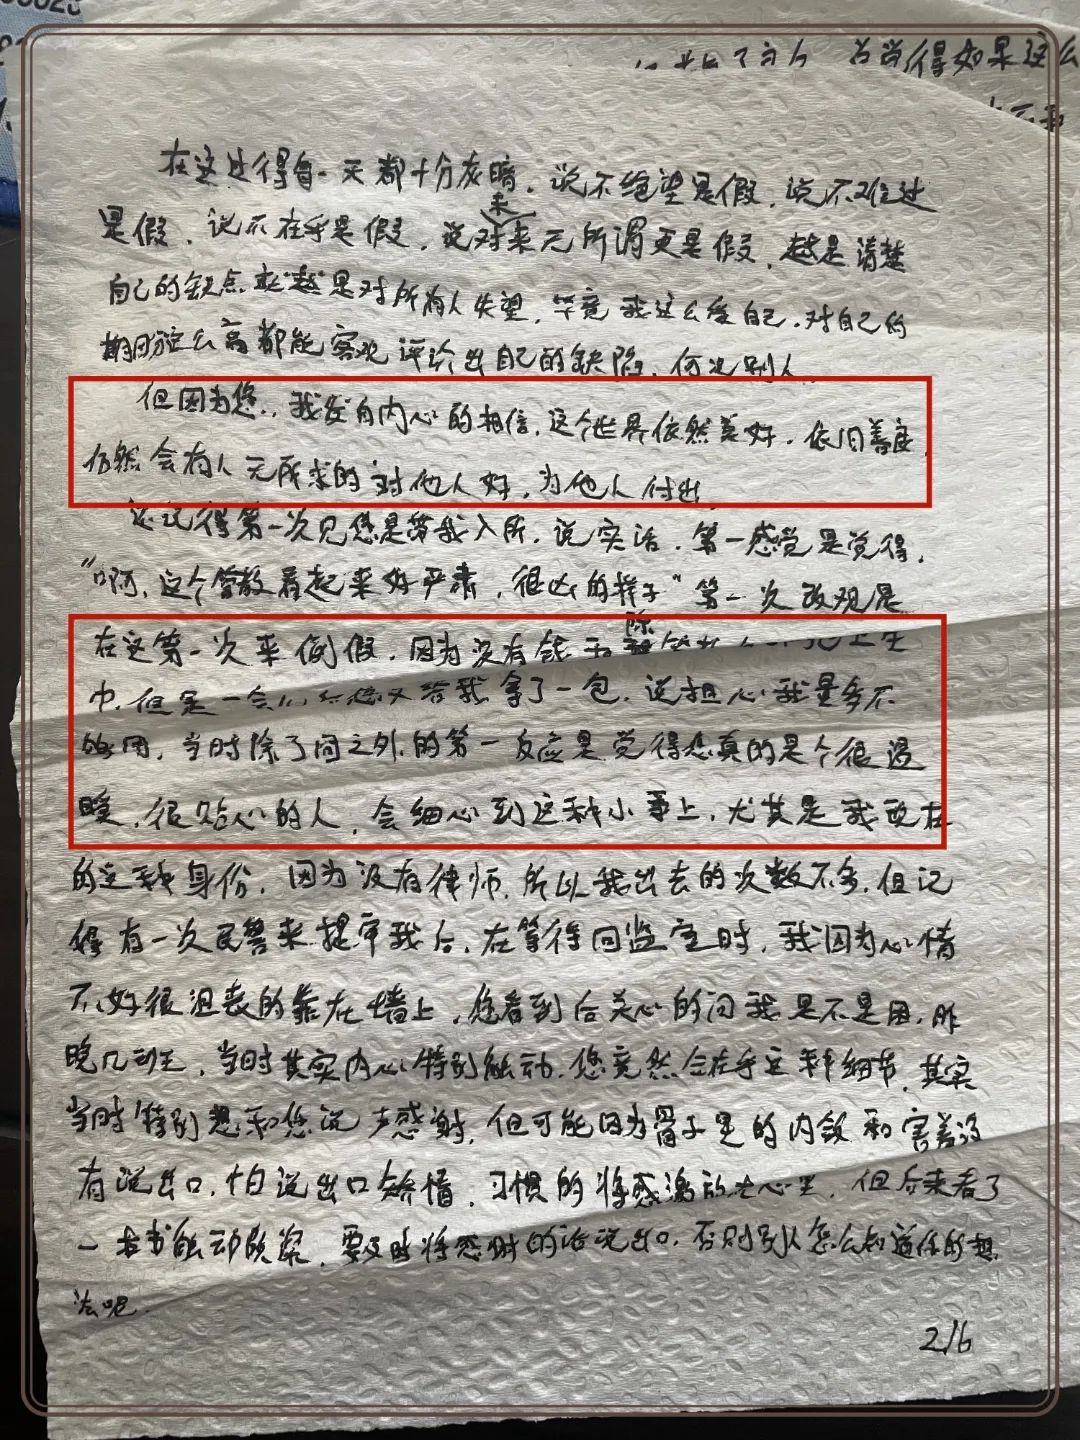 得如果这么
在这过得每一天都十分灰暗，说不绝望是假，说不难过
是假，说不在乎是假，说对未来无所谓更是假，越是清楚
自己的缺点就越是对所有人失望，毕竟我这么爱自己，对自己的
期望这么高都能客观评论出自己的缺陷，何况别人。
但因为您，我发自内心的相信，这个世界依然美好，依旧善良，
仍然会有人无所求的对他人好，为他人付出
还记得第一次见您是带我入所，说实话，第一感觉是觉得，
“啊，这个管教看起来好严肃，很凶的样子”第一次改观是
在这第一次来例假，因为没有钱
巾，但是一会儿您又给我拿了一包，说担心我量多不
够用，当时除了间之外的第一反应是觉得您真的是个很温
暖，很贴心的人，会细心到这种小事上，尤其是我现在
的这种身份，因为没有律师，所以我出去的次数不多，但记
得有一次民警来提审我后，在等待回监室时，我因为心情
不好很沮丧的靠在墙上，您看到后关心的问我是不是困，昨
晚几班，当时其实内心特别触动，您竟然会在乎这种细节，其实
当时特别想和您说声感谢，但可能因为骨子里的内敛和害羞没
有说出口，怕说出口矫情，习惯的将感激放在心里，但后来看了
一本书触动颇深，要及时将感谢的话说出口，否则别人怎么知道你的想
法呢。
2/6